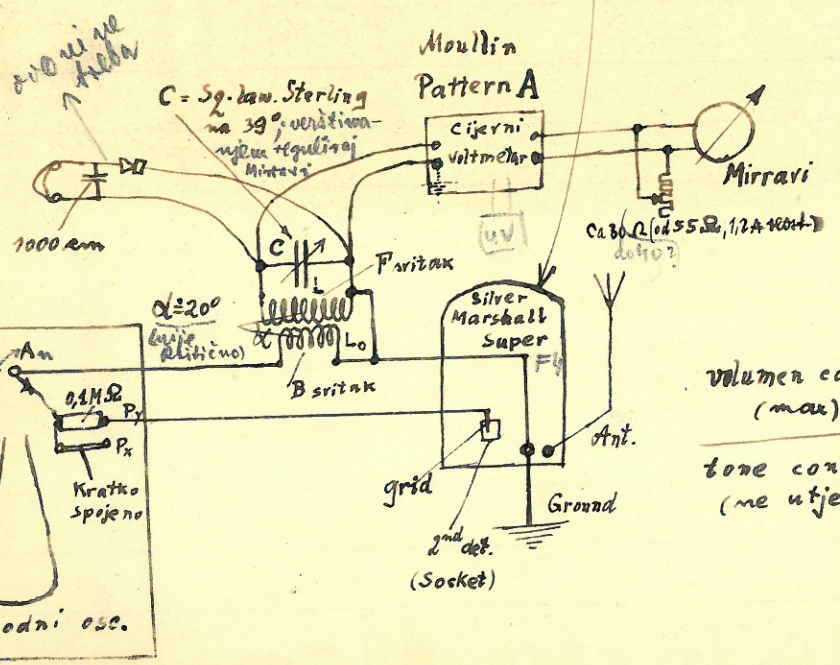 ovo ni ne
treba
Moullin
Pattern A
C = Sq. law. Sterling
na 39°;
njem reguliraj
Mirravi
Cijevni
voltmetar
Mirravi
1000 cm
UV
Ca 30 Ω (od 55 Ω, 1,2 A
do 40?
C
L
F svitak
α = 20°
(nije
kritično)
α
L₀
B svitak
Silver
Marshall
Super
F4
An
0,1 MΩ
Py
Px
Kratko
spojeno
grid
2nd det.
(Socket)
Ant.
Ground
volumen co
(max)
tone con
(ne utje
odni osc.